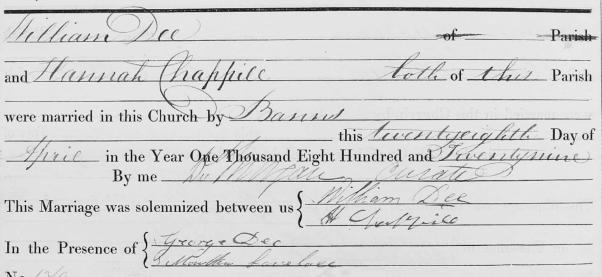 William Dee of Parish
and Hannah Chappill both of this Parish
were married in this Church by Banns
this twentyeighth Day of
April in the Year One Thousand Eight Hundred and Twentynine
By me Morgan Curate
This Marriage was solemnized between us { William Dee
H Chappill
In the Presence of { George Dee
Lovelock
No.